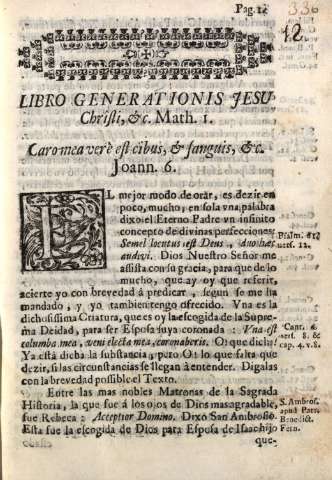 Pag. 12
336
12.
LIBRO GENERATIONIS JESU
Christi, &c. Math. 1.
Caro mea verè est cibus, & sanguis, &c.
Joann. 6.
EL mejor modo de orar, es dezir en
poco, mucho, y en sola vna palabra
dixo el Eterno Padre vn infinito
concepto de divinas perfecciones:
Semel locutus est Deus, duo hæc
audivi. Dios Nuestro Señor me
assista con su gracia, para que de lo
mucho, que ay oy que referir,
acierte yo con brevedad á predicar, segun se me ha
mandado, y yo tambien tengo ofrecido. Vna es la
dichosissima Criatura, que es oy la escogida de la Supre-
ma Deidad, para ser Esposa suya coronada: Vna est
columba mea, veni electa mea, coronaberis. O: que dicha!
Ya está dicha la substancia; pero O! lo que falta que
dezir, si las circunstancias se llegan á entender. Digalas
con la brevedad possible el Texto.
Entre las mas nobles Matronas de la Sagrada
Historia, la que fue á los ojos de Dios mas agradable,
fue Rebeca: Acceptior Domino. Dixo San Ambrosio.
Esta fue la escogida de Dios para Esposa de Isaac hijo
que-
Psalm. 61.
vers. 12.
Cant. 6
vers. 8. &
cap. 4. v. 8.
S. Ambros.
apud Patr.
Benedict.
Fern.